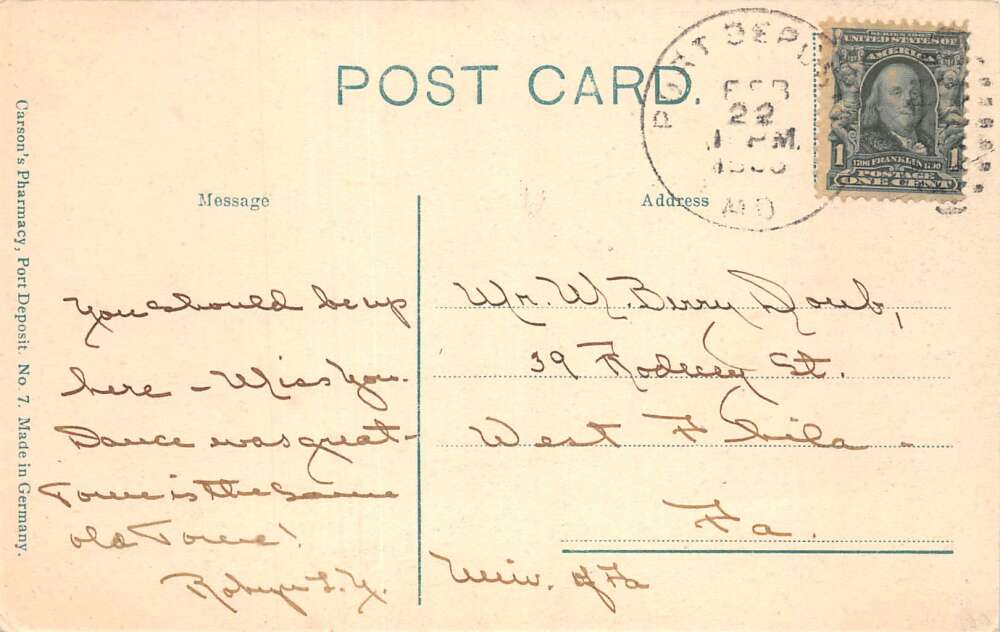 POST CARD.
PORT DEPO
FEB
22
1 PM
MD
SERIES 1902
UNITED STATES OF
AMERICA
1 1706 FRANKLIN 1790 1
POSTAGE
ONE CENT
Carson's Pharmacy, Port Deposit. No. 7. Made in Germany.
Message
You should be up
here – Miss you.
Dance was great –
Town is the same
old Town!
Address
Mr. W. Berry Doub,
39 Rodney St.
West Phila –
Pa.
Univ. of Pa